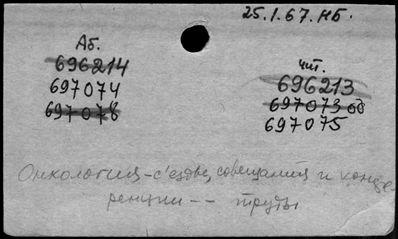 25.1.67. НБ.
Аб.
696214
697074
697078
чит.
696213
697073
697075
Онкология - съезды, совещания и конфе
ренции -- труды